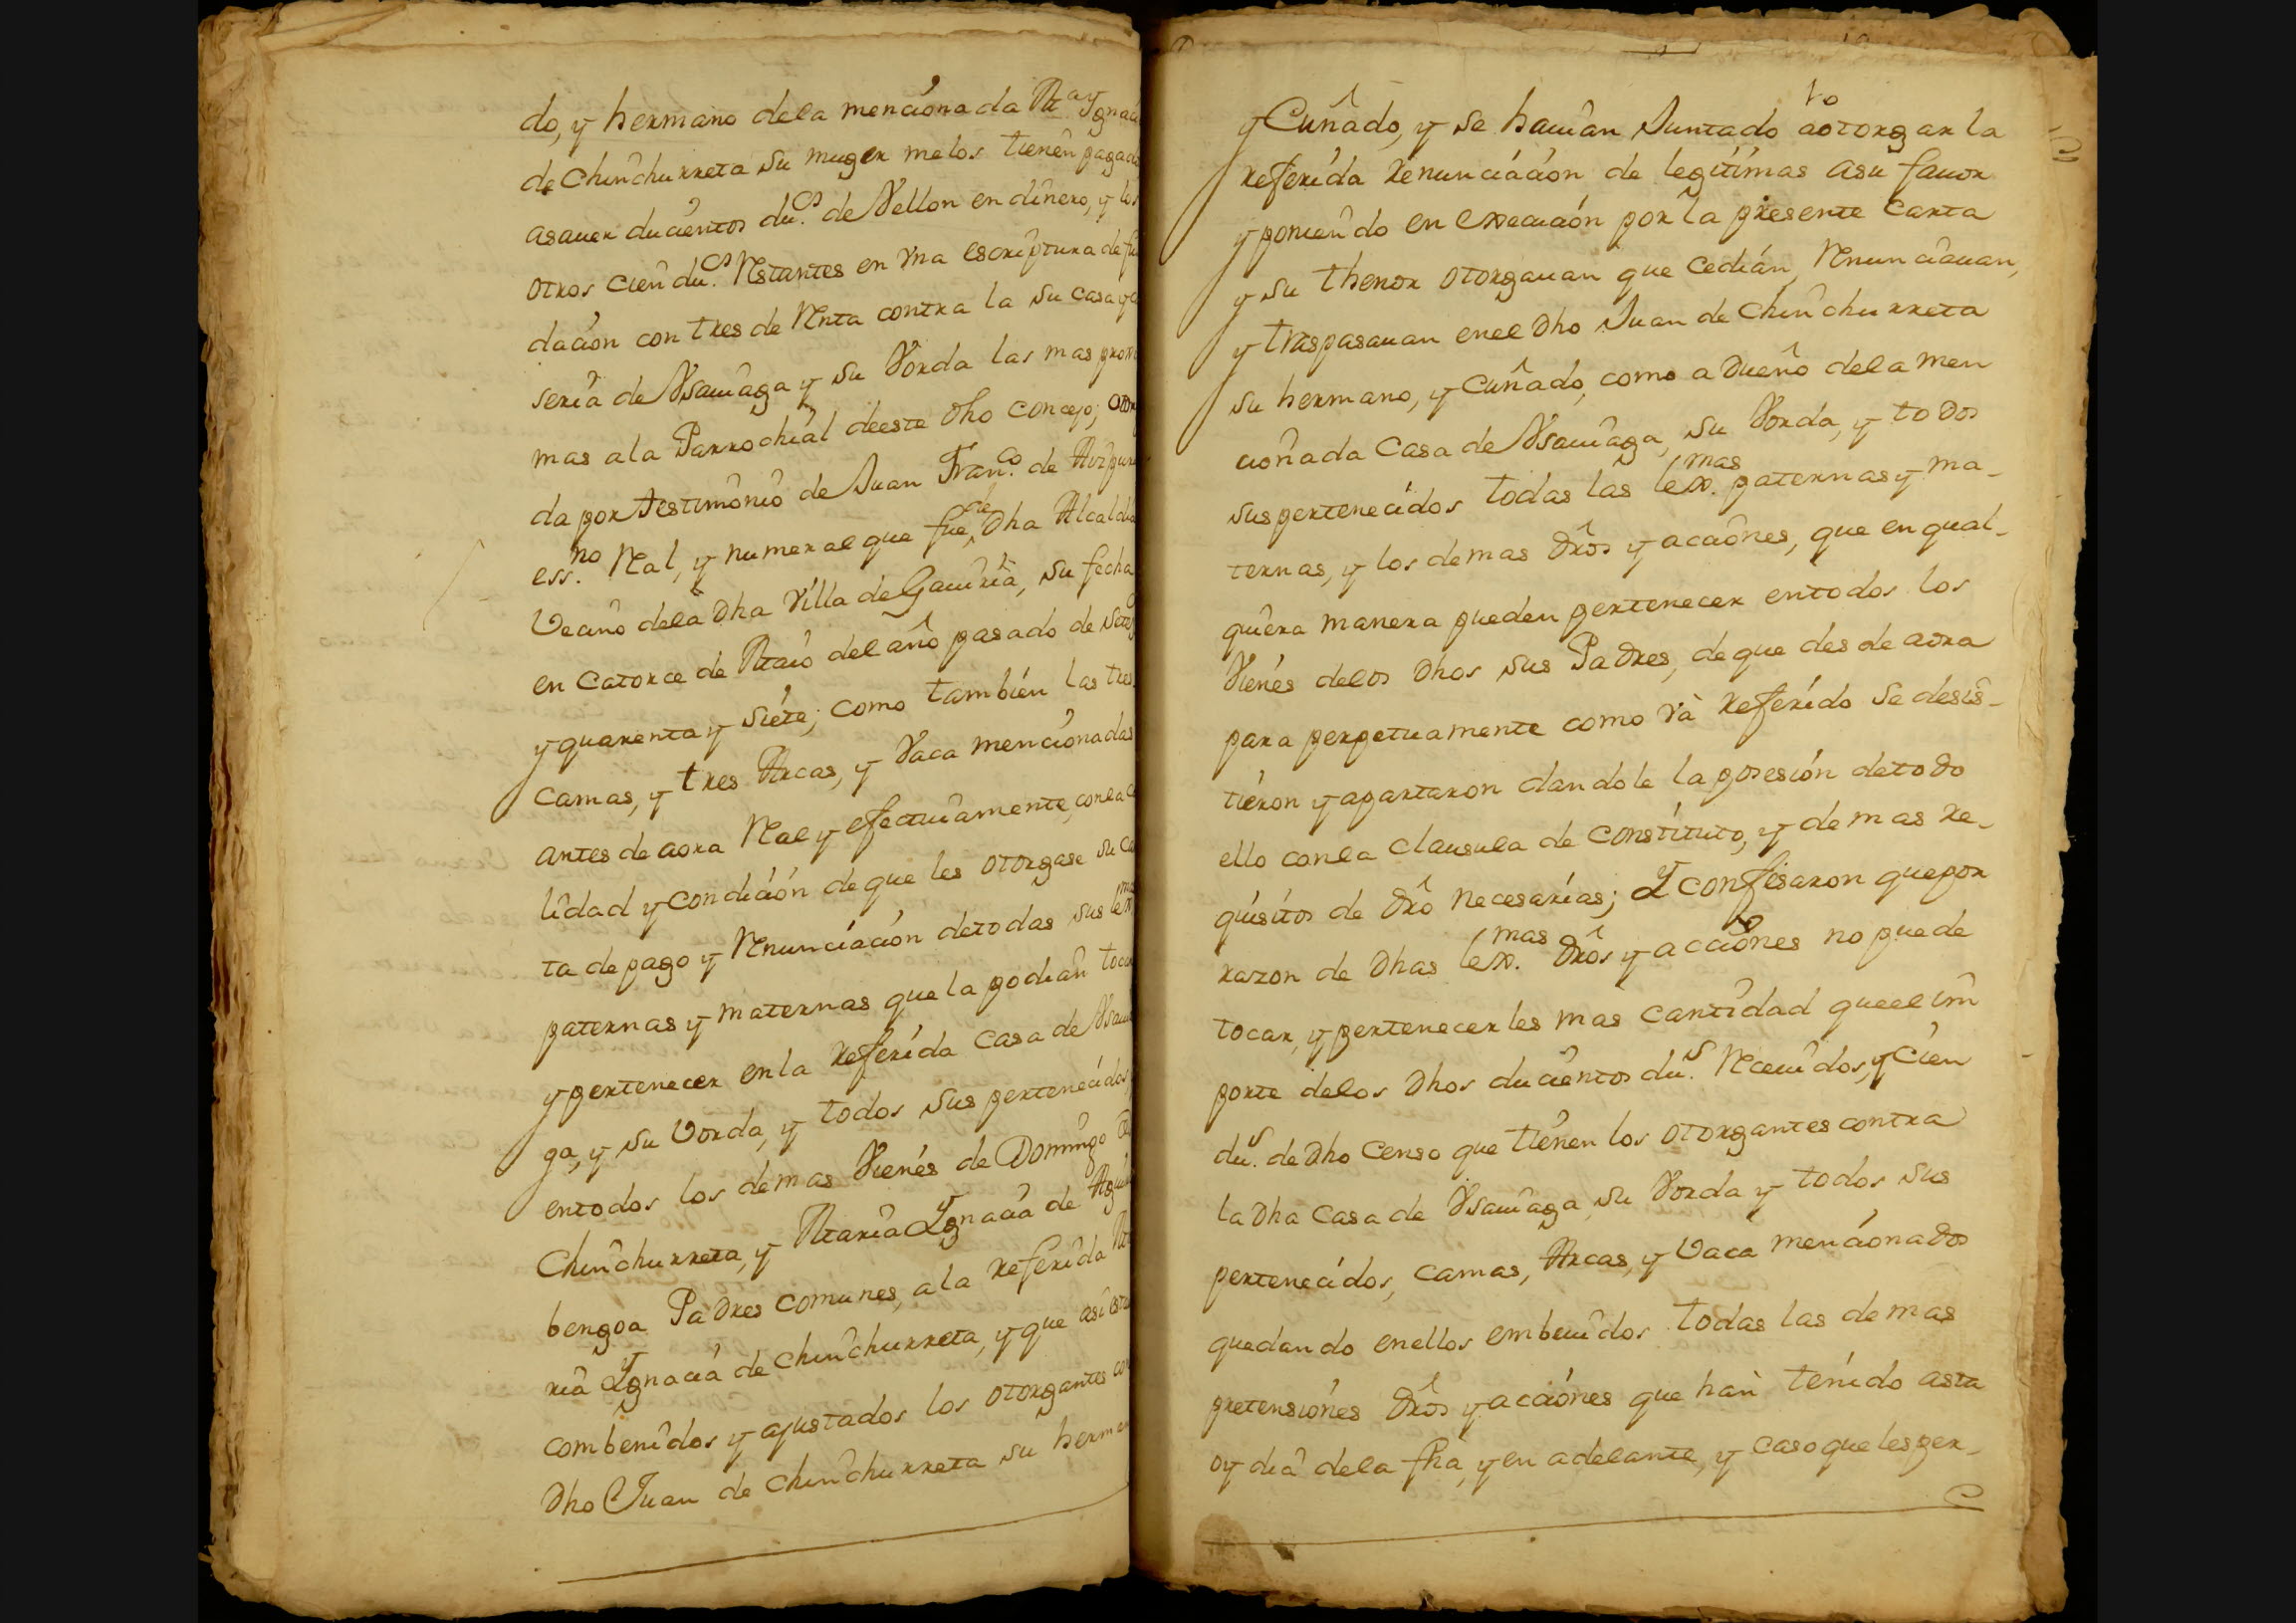 do, y hermano dela mencionada Ma Ygnaci
de Chinchurreta su muger melos tienen pagad
asauer ducientos du.cs de Vellon en dinero, y los
otros cien du.cs Restantes en vna escriptura de fu
dacion con tres de Renta contra la su casa y ca
seria de Vsauiaga y su Vorda las mas proxi
mas ala Parrochial deeste dho concejo; otor
da por testimonio de Juan Fran.co de
ess.no Real, y numeral que fue de dha Alcaldia
Vecino dela dha Villa de Gauiria, su fecha
en catorce de Maio del año pasado de Sete
y quarenta y siete; como tambien las tres
camas, y tres Arcas, y Vaca mencionadas
antes de aora Real y efectiuamente, conla ca
lidad y condicion de que les otorgase su ca
ta de pago y Renunciacion detodas sus lex.mas
paternas y maternas que la podian tocar
y pertenecer enla referida casa de Vsauia
ga, y su Vorda, y todos sus pertenecidos,
entodos los demas Vienes de Domingo de
Chinchurreta, y Maria Ygnacia de Aguir
bengoa Padres comunes, ala referida Ma
ria Ygnacia de Chinchurreta, y que asi esta
combenidos y ajustados los otorgantes co
dho Juan de Chinchurreta su herma
y Cuñado, y se hauian Juntado a otorgar la
referida renunciacion de legitimas asu fauor
y poniendo en execucion por la presente Carta
y su thenor otorgauan que cedian, Renunciauan,
y traspasauan enel dho Juan de Chinchurreta
su hermano, y Cuñado, como a Dueño dela men
cionada Casa de Vsauiaga, su Vorda, y todos
sus pertenecidos todas las lex.mas paternas y ma-
ternas, y los demas dros y acciones, que en qual-
quiera manera pueden pertenecer entodos los
Vienes delos dhos sus Padres, de que desde aora
para perpetuamente como va referido se desis-
tieron y apartaron dandole la posesion detodo
ello conla clausula de constituto, y demas re-
quisitos de dro necesarias; Y confesaron que por
razon de dhas lex.mas dros y acciones no puede
tocar, y pertenecerles mas cantidad que el im
porte delos dhos ducientos du.s Receuidos, y Cien
du.s de dho Censo que tienen los otorgantes contra
la dha Casa de Vsauiaga su Vorda y todos sus
pertenecidos, camas, Arcas, y Vaca mencionados
quedando enellos embeuidos todas las demas
pretensiones dros y acciones que han tenido asta
oy dia dela fha, y en adelante, y caso que les per-